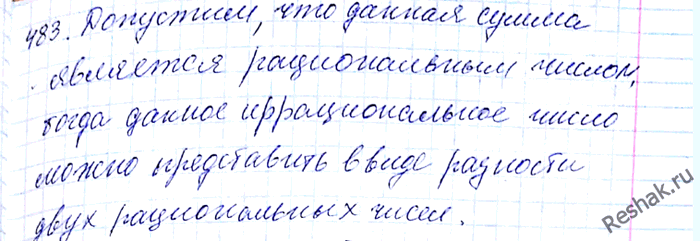 483. Допустим, что данная сумма
является рациональным числом,
тогда данное иррациональное число
можно представить в виде разности
двух рациональных чисел.
Reshak.ru